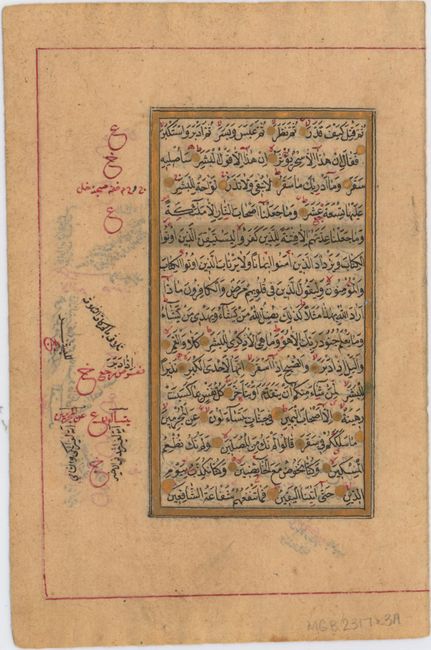 ثم قتل كيف قدر ثم نظر ثم عبس وبسر ثم ادبر واستكبر
فقال ان هذا الا سحر يؤثر ان هذا الا قول البشر ساصليه
سقر وما ادريك ما سقر لا تبقي ولا تذر لواحة للبشر
عليها تسعة عشر وما جعلنا اصحاب النار الا ملئكة
وما جعلنا عدتهم الا فتنة للذين كفروا ليستيقن الذين اوتوا
الكتاب ويزداد الذين امنوا ايمانا ولا يرتاب الذين اوتوا الكتاب
والمؤمنون وليقول الذين في قلوبهم مرض والكافرون ماذا
اراد الله بهذا مثلا كذلك يضل الله من يشاء ويهدي من يشاء
وما يعلم جنود ربك الا هو وما هي الا ذكرى للبشر كلا والقمر
والليل اذ ادبر والصبح اذا اسفر انها لاحدى الكبر نذيرا
للبشر لمن شاء منكم ان يتقدم او يتاخر كل نفس بما كسبت
رهينة الا اصحاب اليمين في جنات يتساءلون عن المجرمين
ما سلككم في سقر قالوا لم نك من المصلين ولم نك نطعم
المسكين وكنا نخوض مع الخائضين وكنا نكذب بيوم
الدين حتى اتينا اليقين فما تنفعهم شفاعة الشافعين
ع
ع
MGB.2317.3A